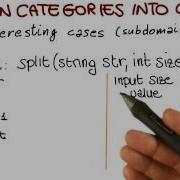 N CATEGORIES INTO
eresting cases (subdomai
split(string str, int size
input size
value